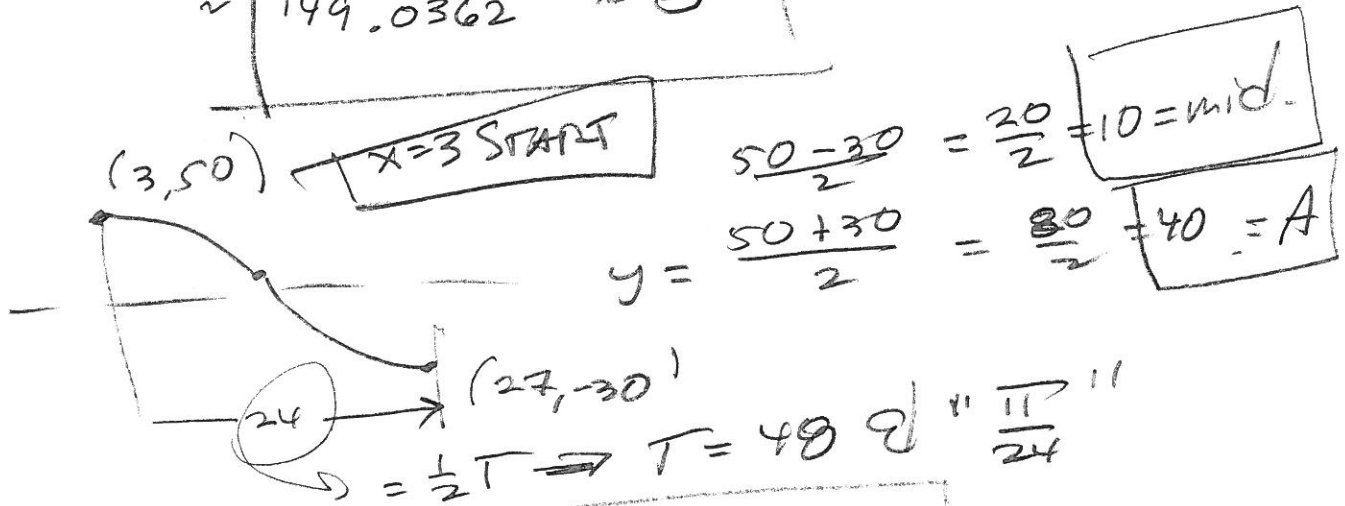 ≈ 149.0362
(3,50) x=3 START
50-30/2 = 20/2 = 10 = mid.
y = 50+30/2 = 80/2 = 40 = A
24 (27,-30)
= 1/2 T → T = 48 & "π/24"